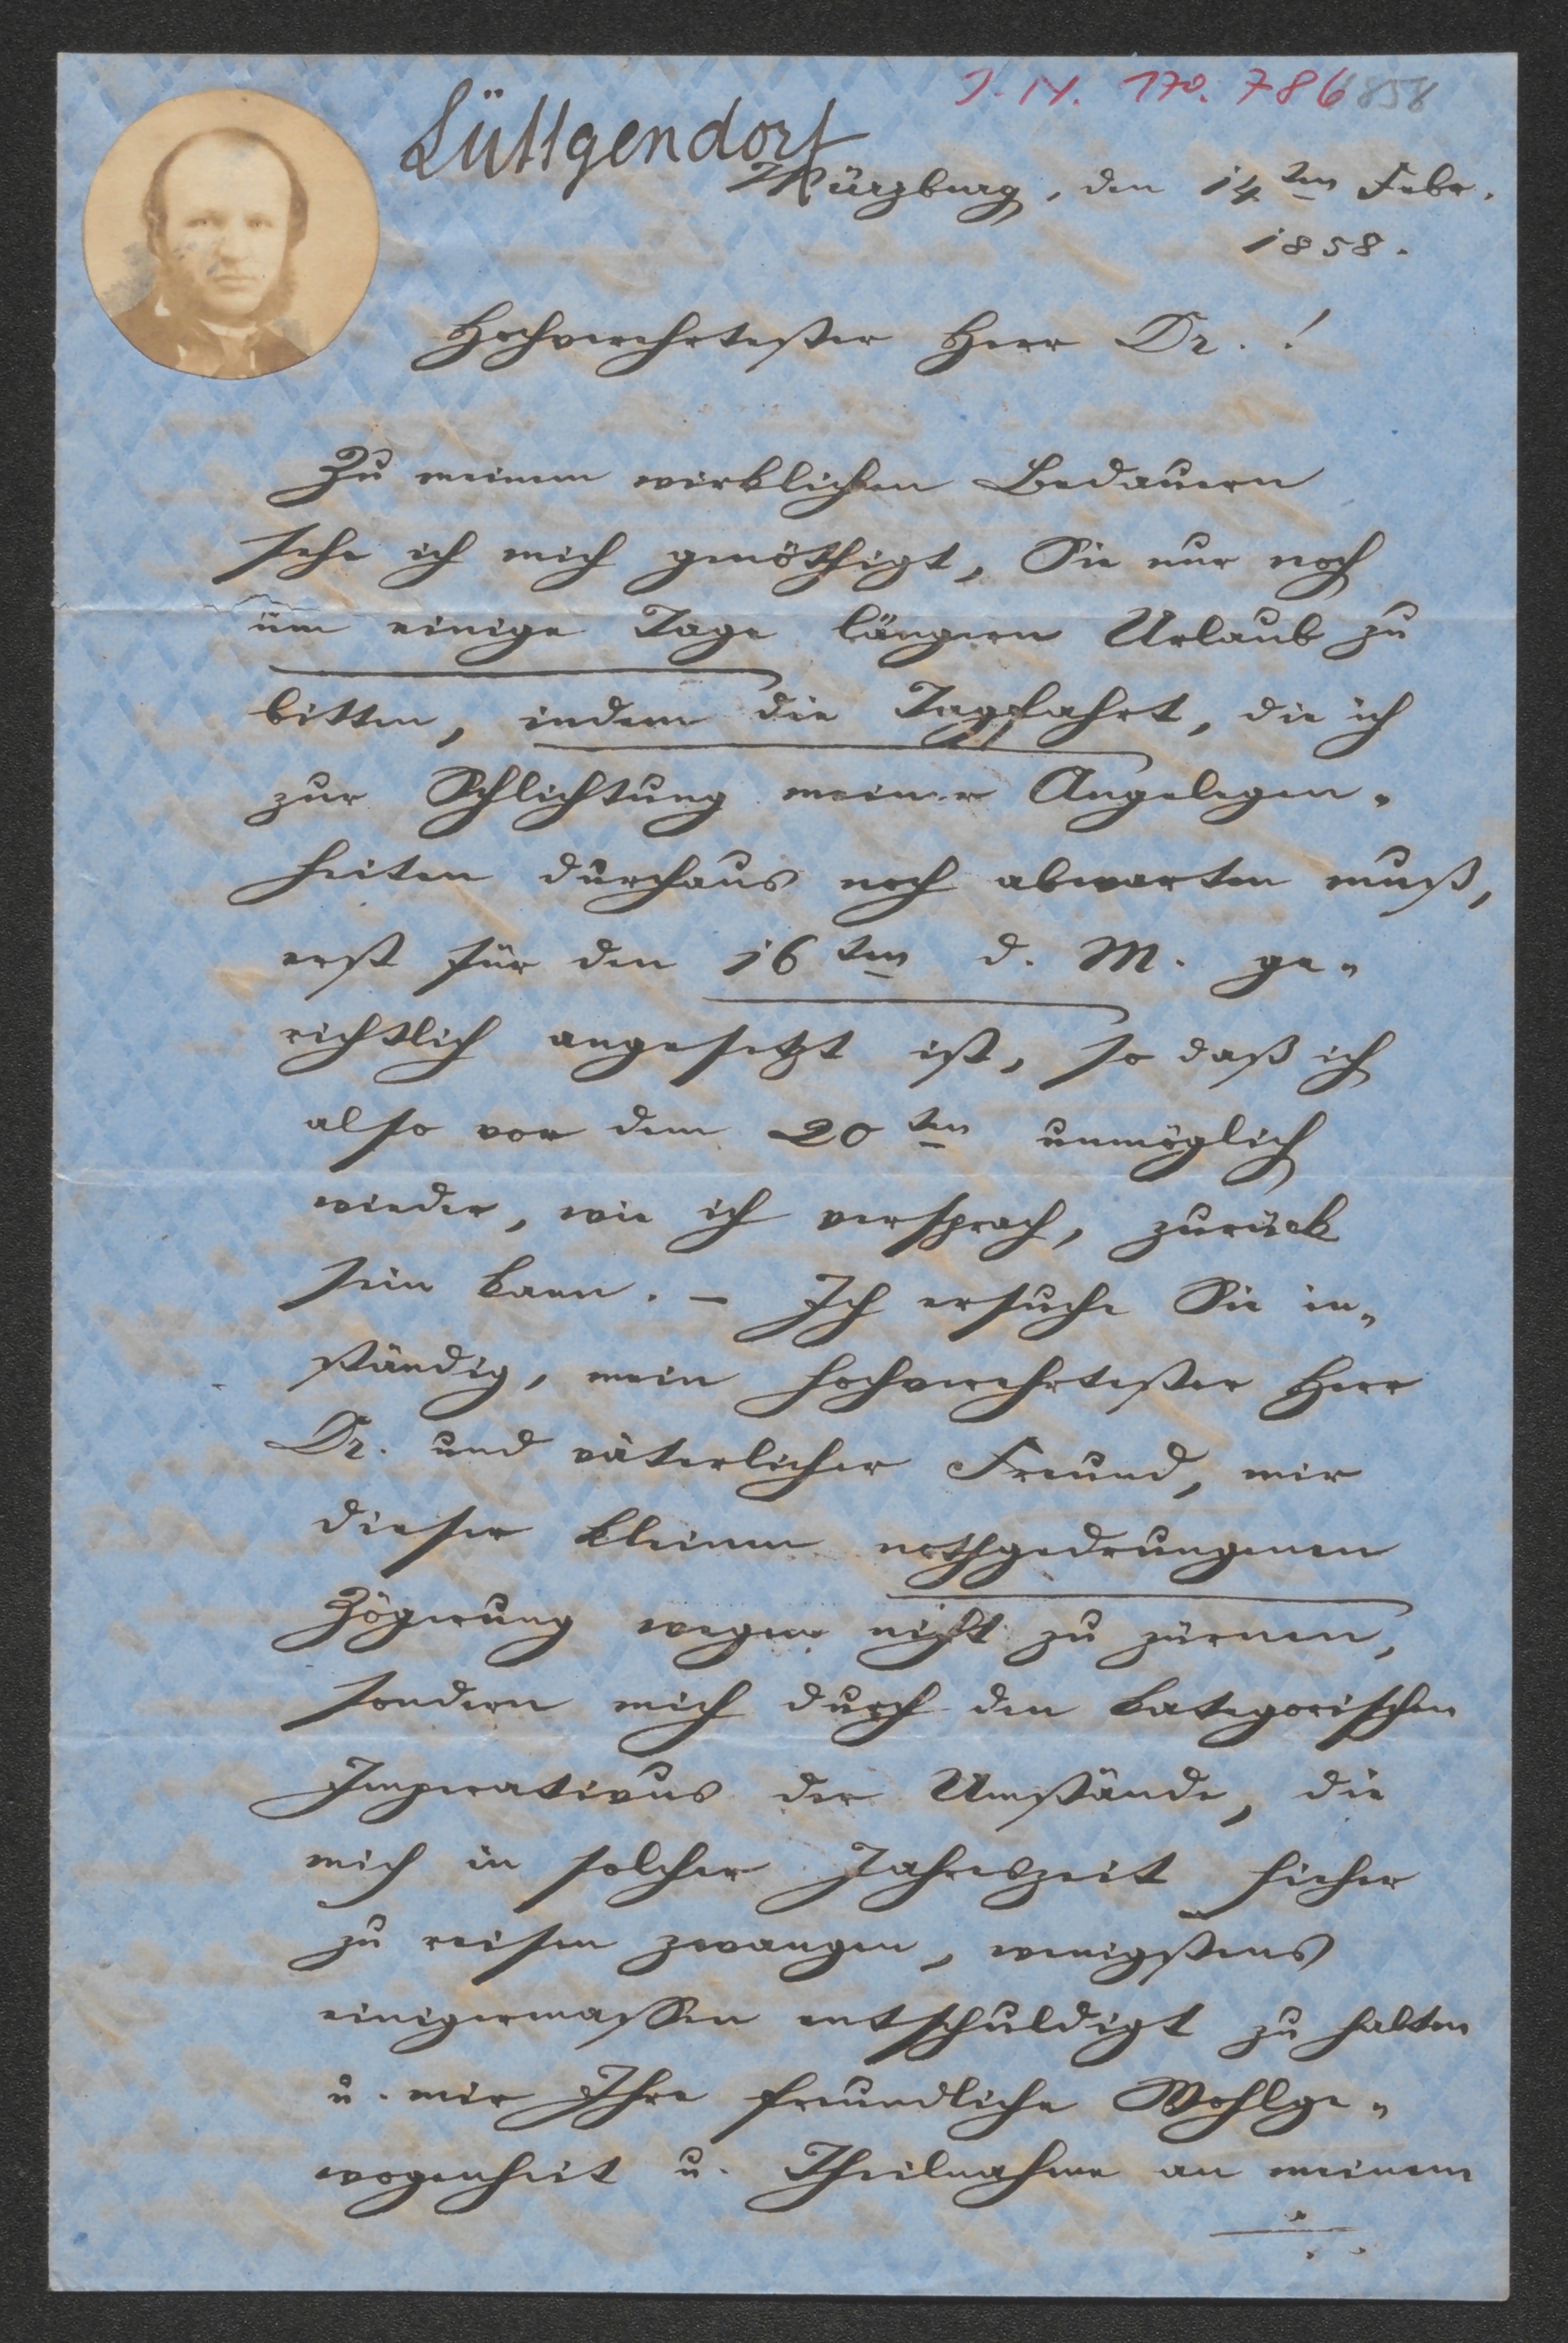 J. N. 170.786
858
Lüttgendorf
Würzburg, den 14ten Febr.
1858.
Hochverehrtester Herr Dr.!
Zu meinem wirklichen Bedauern
sehe ich mich genöthigt, Sie nur noch
um einige Tage längern Urlaub zu
bitten, indem die Tagsfahrt, die ich
zur Schlichtung meiner Angelegen„
heiten durchaus noch abwarten muß,
erst für den 16ten d. M. ge„
richtlich angesetzt ist, so daß ich
also vor dem 20ten unmöglich
wieder, wie ich versprach, zurück
sein kann. – Ich ersuche Sie in„
ständig, mein hochverehrtester Herr
Dr. und väterlicher Freund, mir
dieser kleinen nothgedrungenen
Zögerung wegen nicht zu zürnen,
sondern mich durch den kategorischen
Imperativus der Umstände, die
mich in solcher Jahreszeit hieher
zu reisen zwangen, wenigstens
einigermassen entschuldigt zu halten
u. mir Ihre freundliche Wohlge„
wogenheit u. Theilnahme an meinem